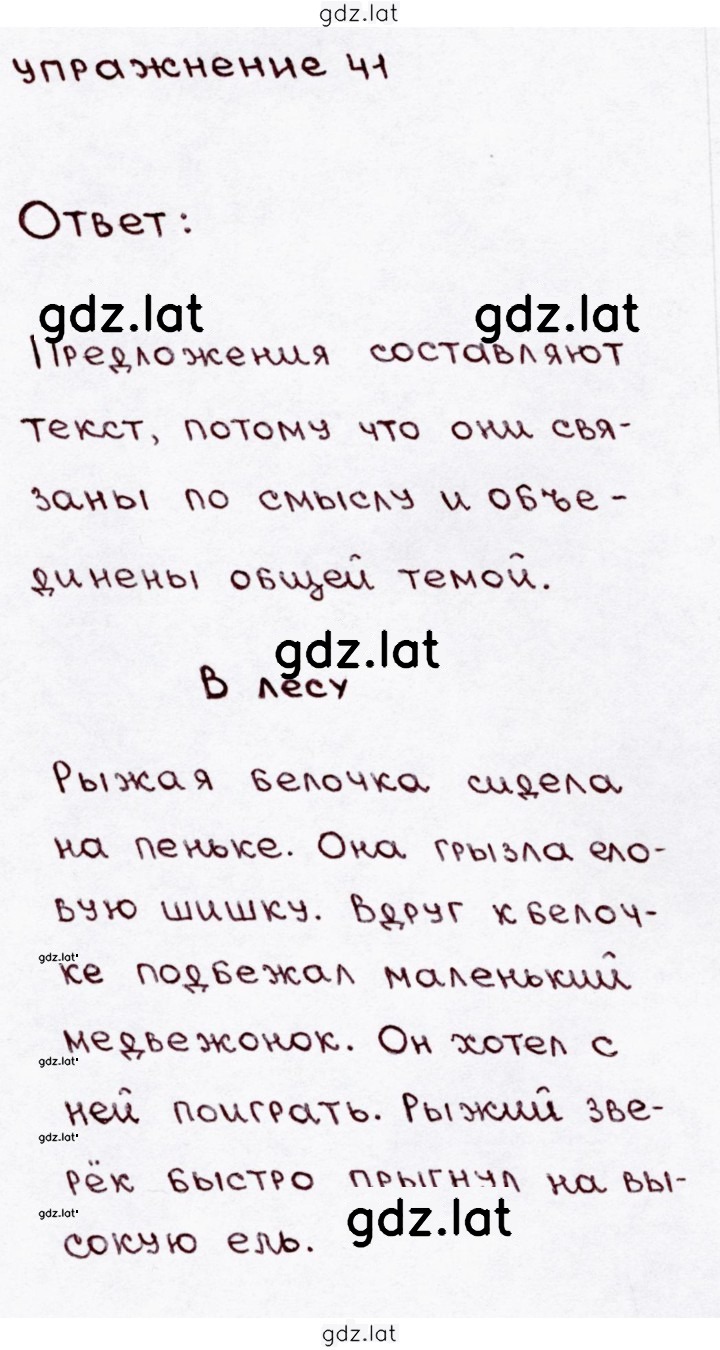 gdz.lat
упражнение 41
Ответ:
gdz.lat gdz.lat
Предложения составляют
текст, потому что они свя-
заны по смыслу и объе-
динены общей темой.
gdz.lat
В лесу
Рыжая белочка сидела
на пеньке. Она грызла ело-
вую шишку. Вдруг к белоч-
gdz.lat
ке подбежал маленький
медвежонок. Он хотел с
gdz.lat
ней поиграть. Рыжий зве-
gdz.lat
рёк быстро прыгнул на вы-
gdz.lat gdz.lat
сокую ель.
gdz.lat